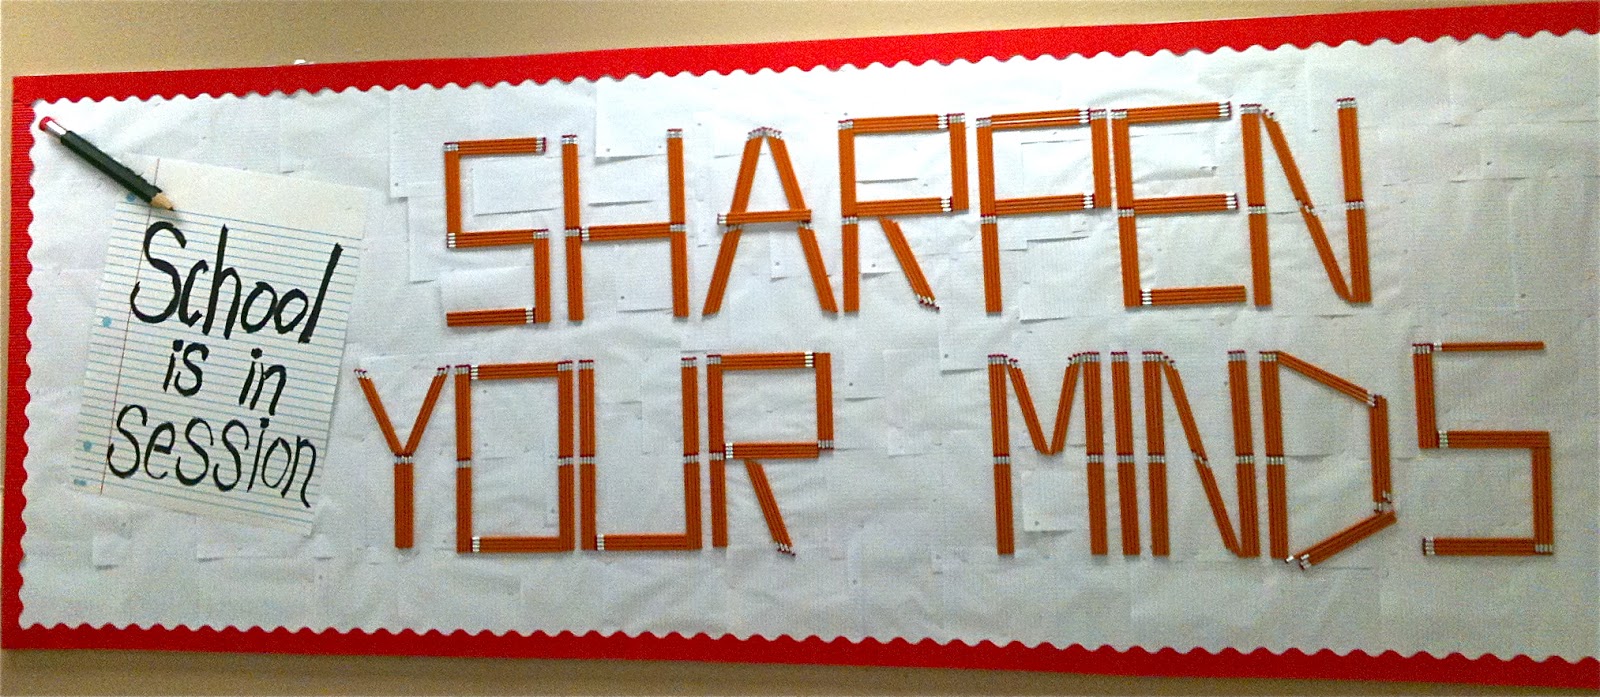 School
is in
session
SHARPEN
YOUR MINDS